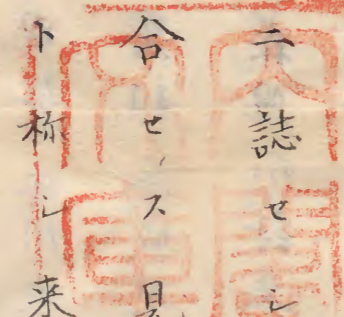 ニ誌セシ
合セス
ト称シ来